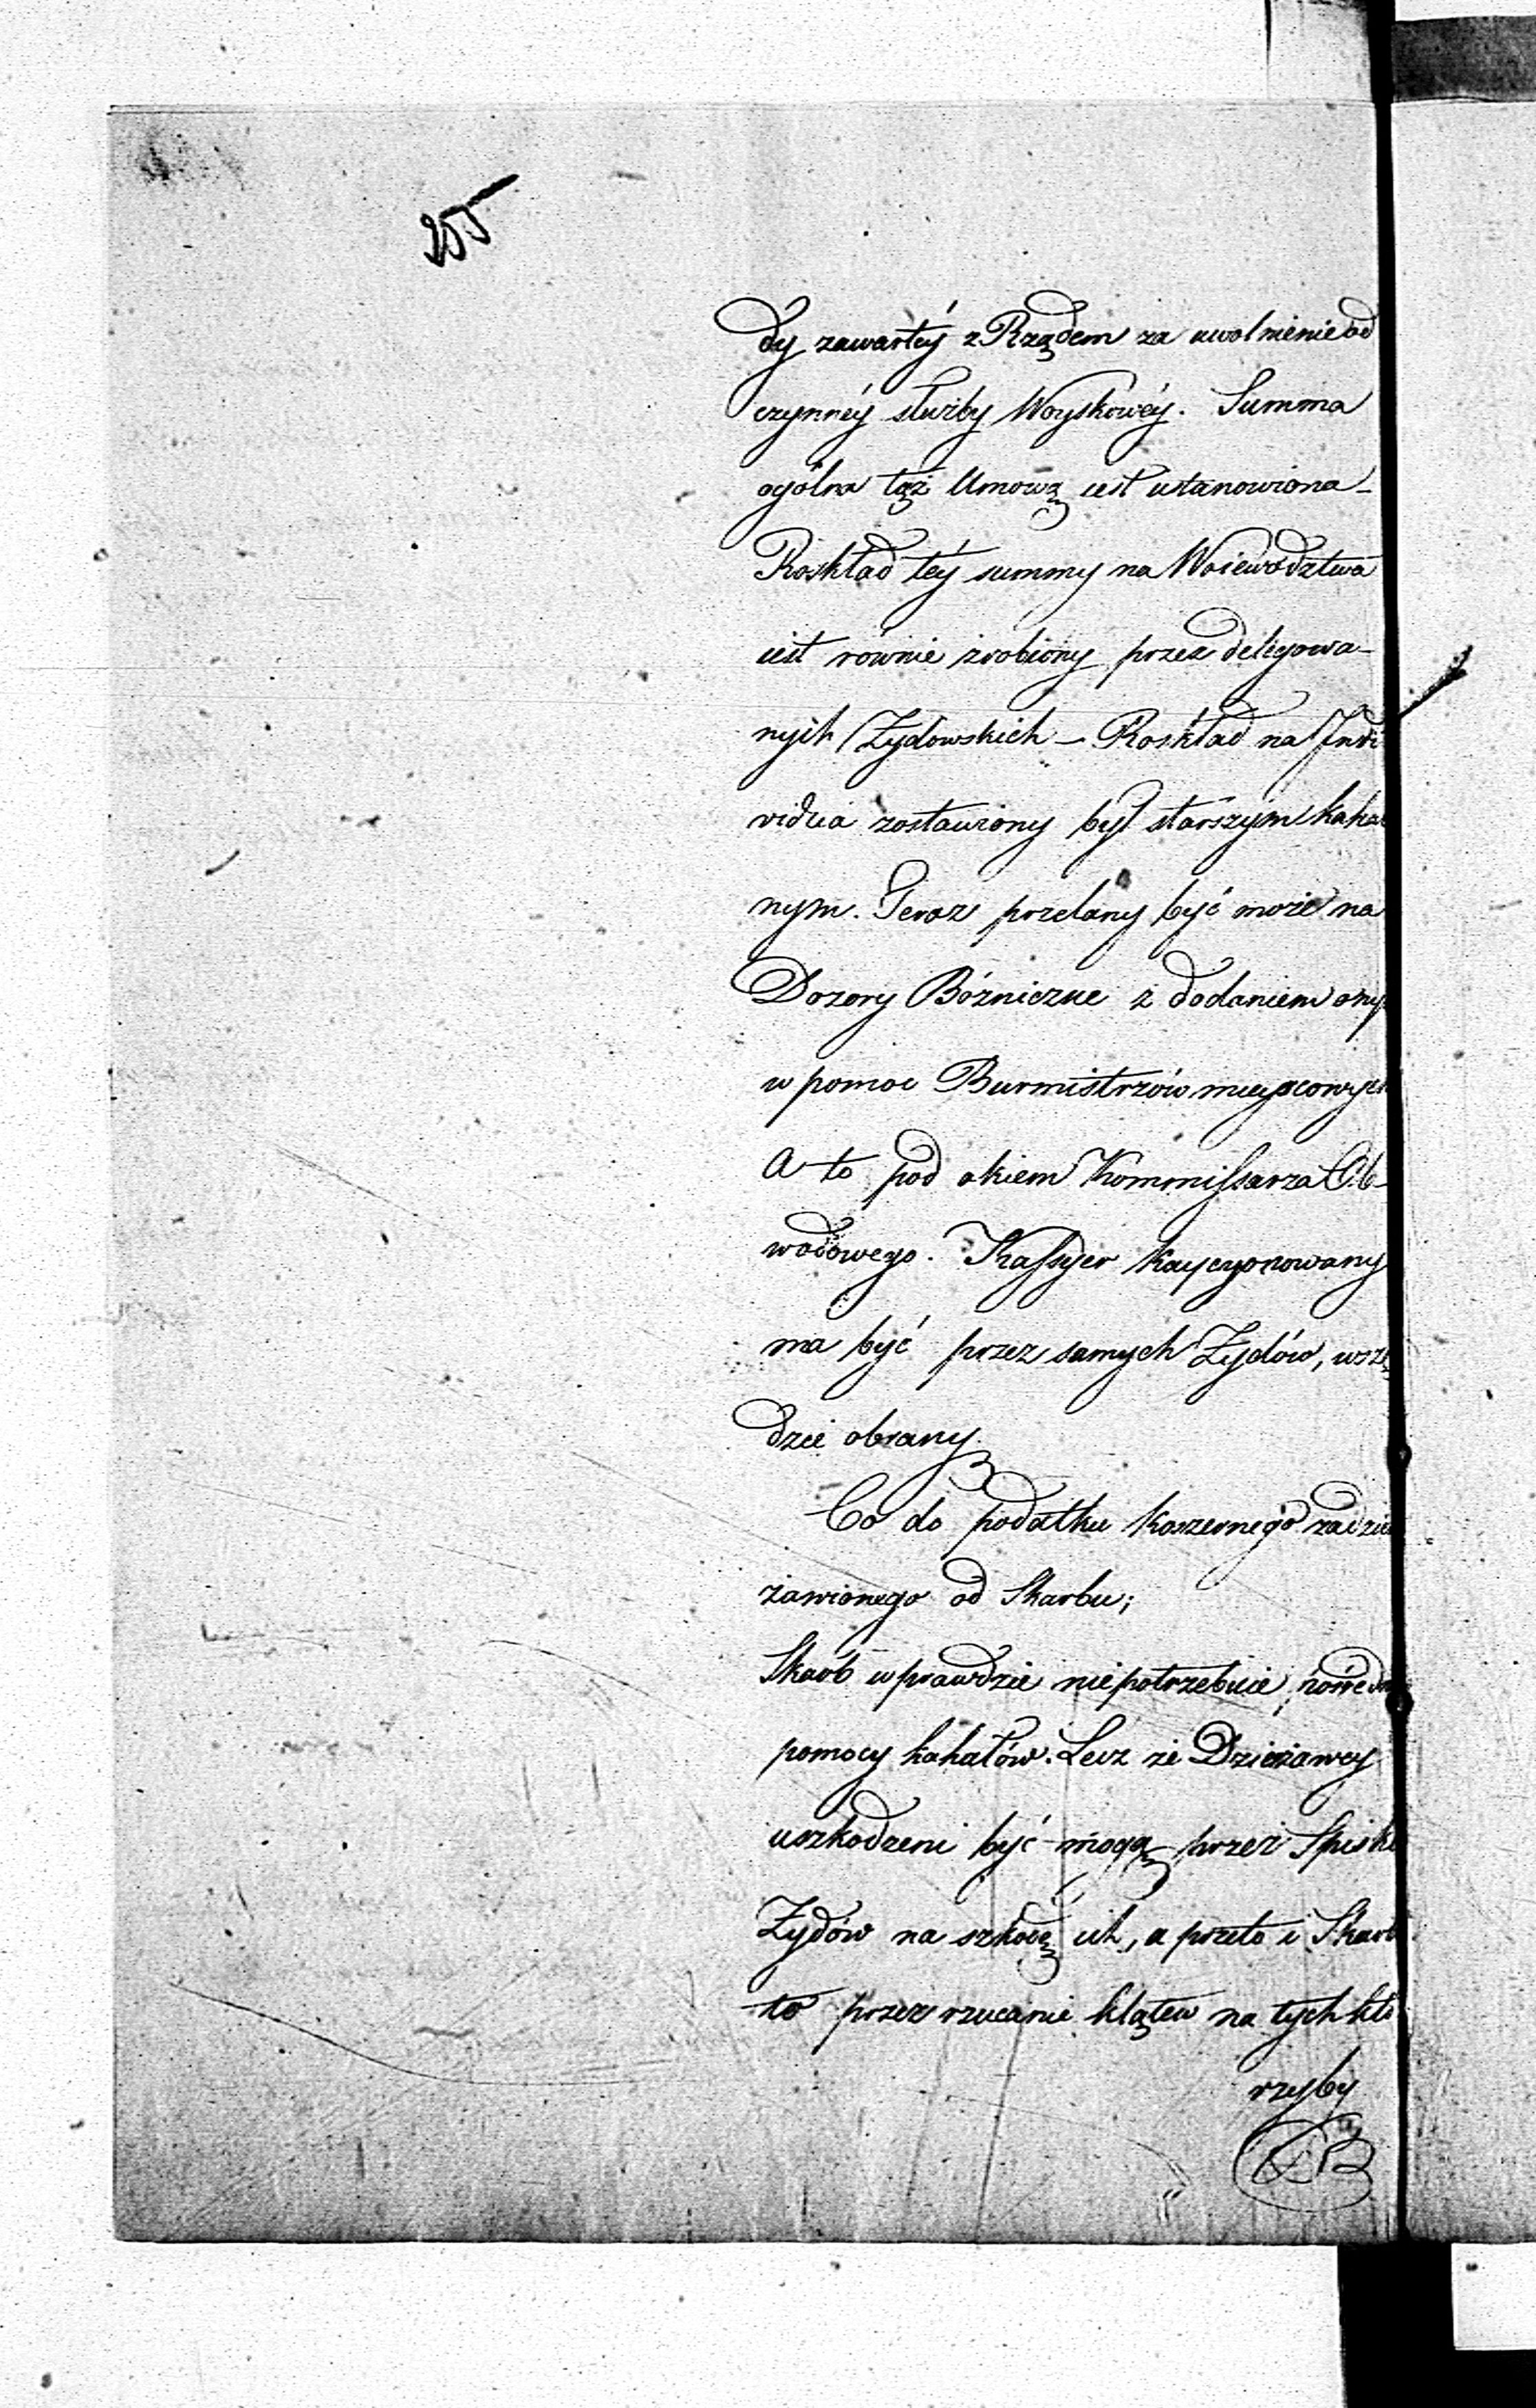 255
dy zawartéy z Rządem za uwolnienie od
czynnéy służby Woyskowéy. Summa
ogólna tąż Umową iest ustanowiona_
Roskład téy summy na Woiewództwa
iest równie zrobiony przez delegowa-
nych Żydowskich _ Roskład na Indi
vidua zostawiony był starszym kahal
nym. Teraz przelany być może na
Dozory Bóżnicze z dodaniem onym
w pomoc Burmistrzów mieyscowych
A to pod okiem Kommissarza Ob-
wodowego. Kassyer kaycyonowany
ma być przez samych Żydów, wszę
dzie obrany.
Co do podatku koszernego zadzier
żawionego od Skarbu;
Skarb wprawdzie niepotrzebuie
pomocy kahałów. Lecz że Dzierżawcy
uszkodzeni być mogą przez Spiski
Żydów na szkodę ich, a przeto i Skarbu
to przez rzucanie klątew na tych któ
rzyby